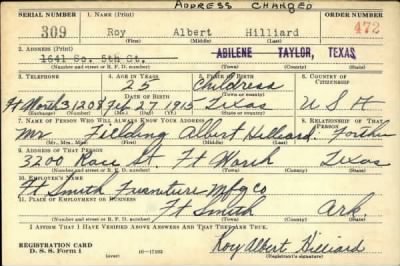 ADDRESS CHANGED
SERIAL NUMBER 1. NAME (Print) ORDER NUMBER
309 Roy Albert Hilliard 472
(First) (Middle) (Last)
2. ADDRESS (Print) ABILENE TAYLOR, TEXAS
1641 So. 5th St.
(Number and street or R. F. D. number) (Town) (County) (State)
3. TELEPHONE 4. AGE IN YEARS 5. PLACE OF BIRTH 6. COUNTRY OF CITIZENSHIP
25 Childress
DATE OF BIRTH (Town or county)
Ft Worth 31208 Feb 27 1915 Texas U S A
(Exchange) (Number) (Mo.) (Day) (Yr.) (State or country)
7. NAME OF PERSON WHO WILL ALWAYS KNOW YOUR ADDRESS 8. RELATIONSHIP OF THAT PERSON
Mr Fielding Albert Hilliard Father
(Mr., Mrs., Miss) (First) (Middle) (Last)
9. ADDRESS OF THAT PERSON
3200 Race St. Ft Worth Texas
(Number and street or R. F. D. number) (Town) (County) (State)
10. EMPLOYER'S NAME
Ft Smith Furniture Mfg Co
11. PLACE OF EMPLOYMENT OR BUSINESS
Ft Smith Ark.
(Number and street or R. F. D. number) (Town) (County) (State)
I AFFIRM THAT I HAVE VERIFIED ABOVE ANSWERS AND THAT THEY ARE TRUE.
REGISTRATION CARD
D. S. S. Form 1 16-17105 Roy Albert Hilliard
(Registrant's signature)